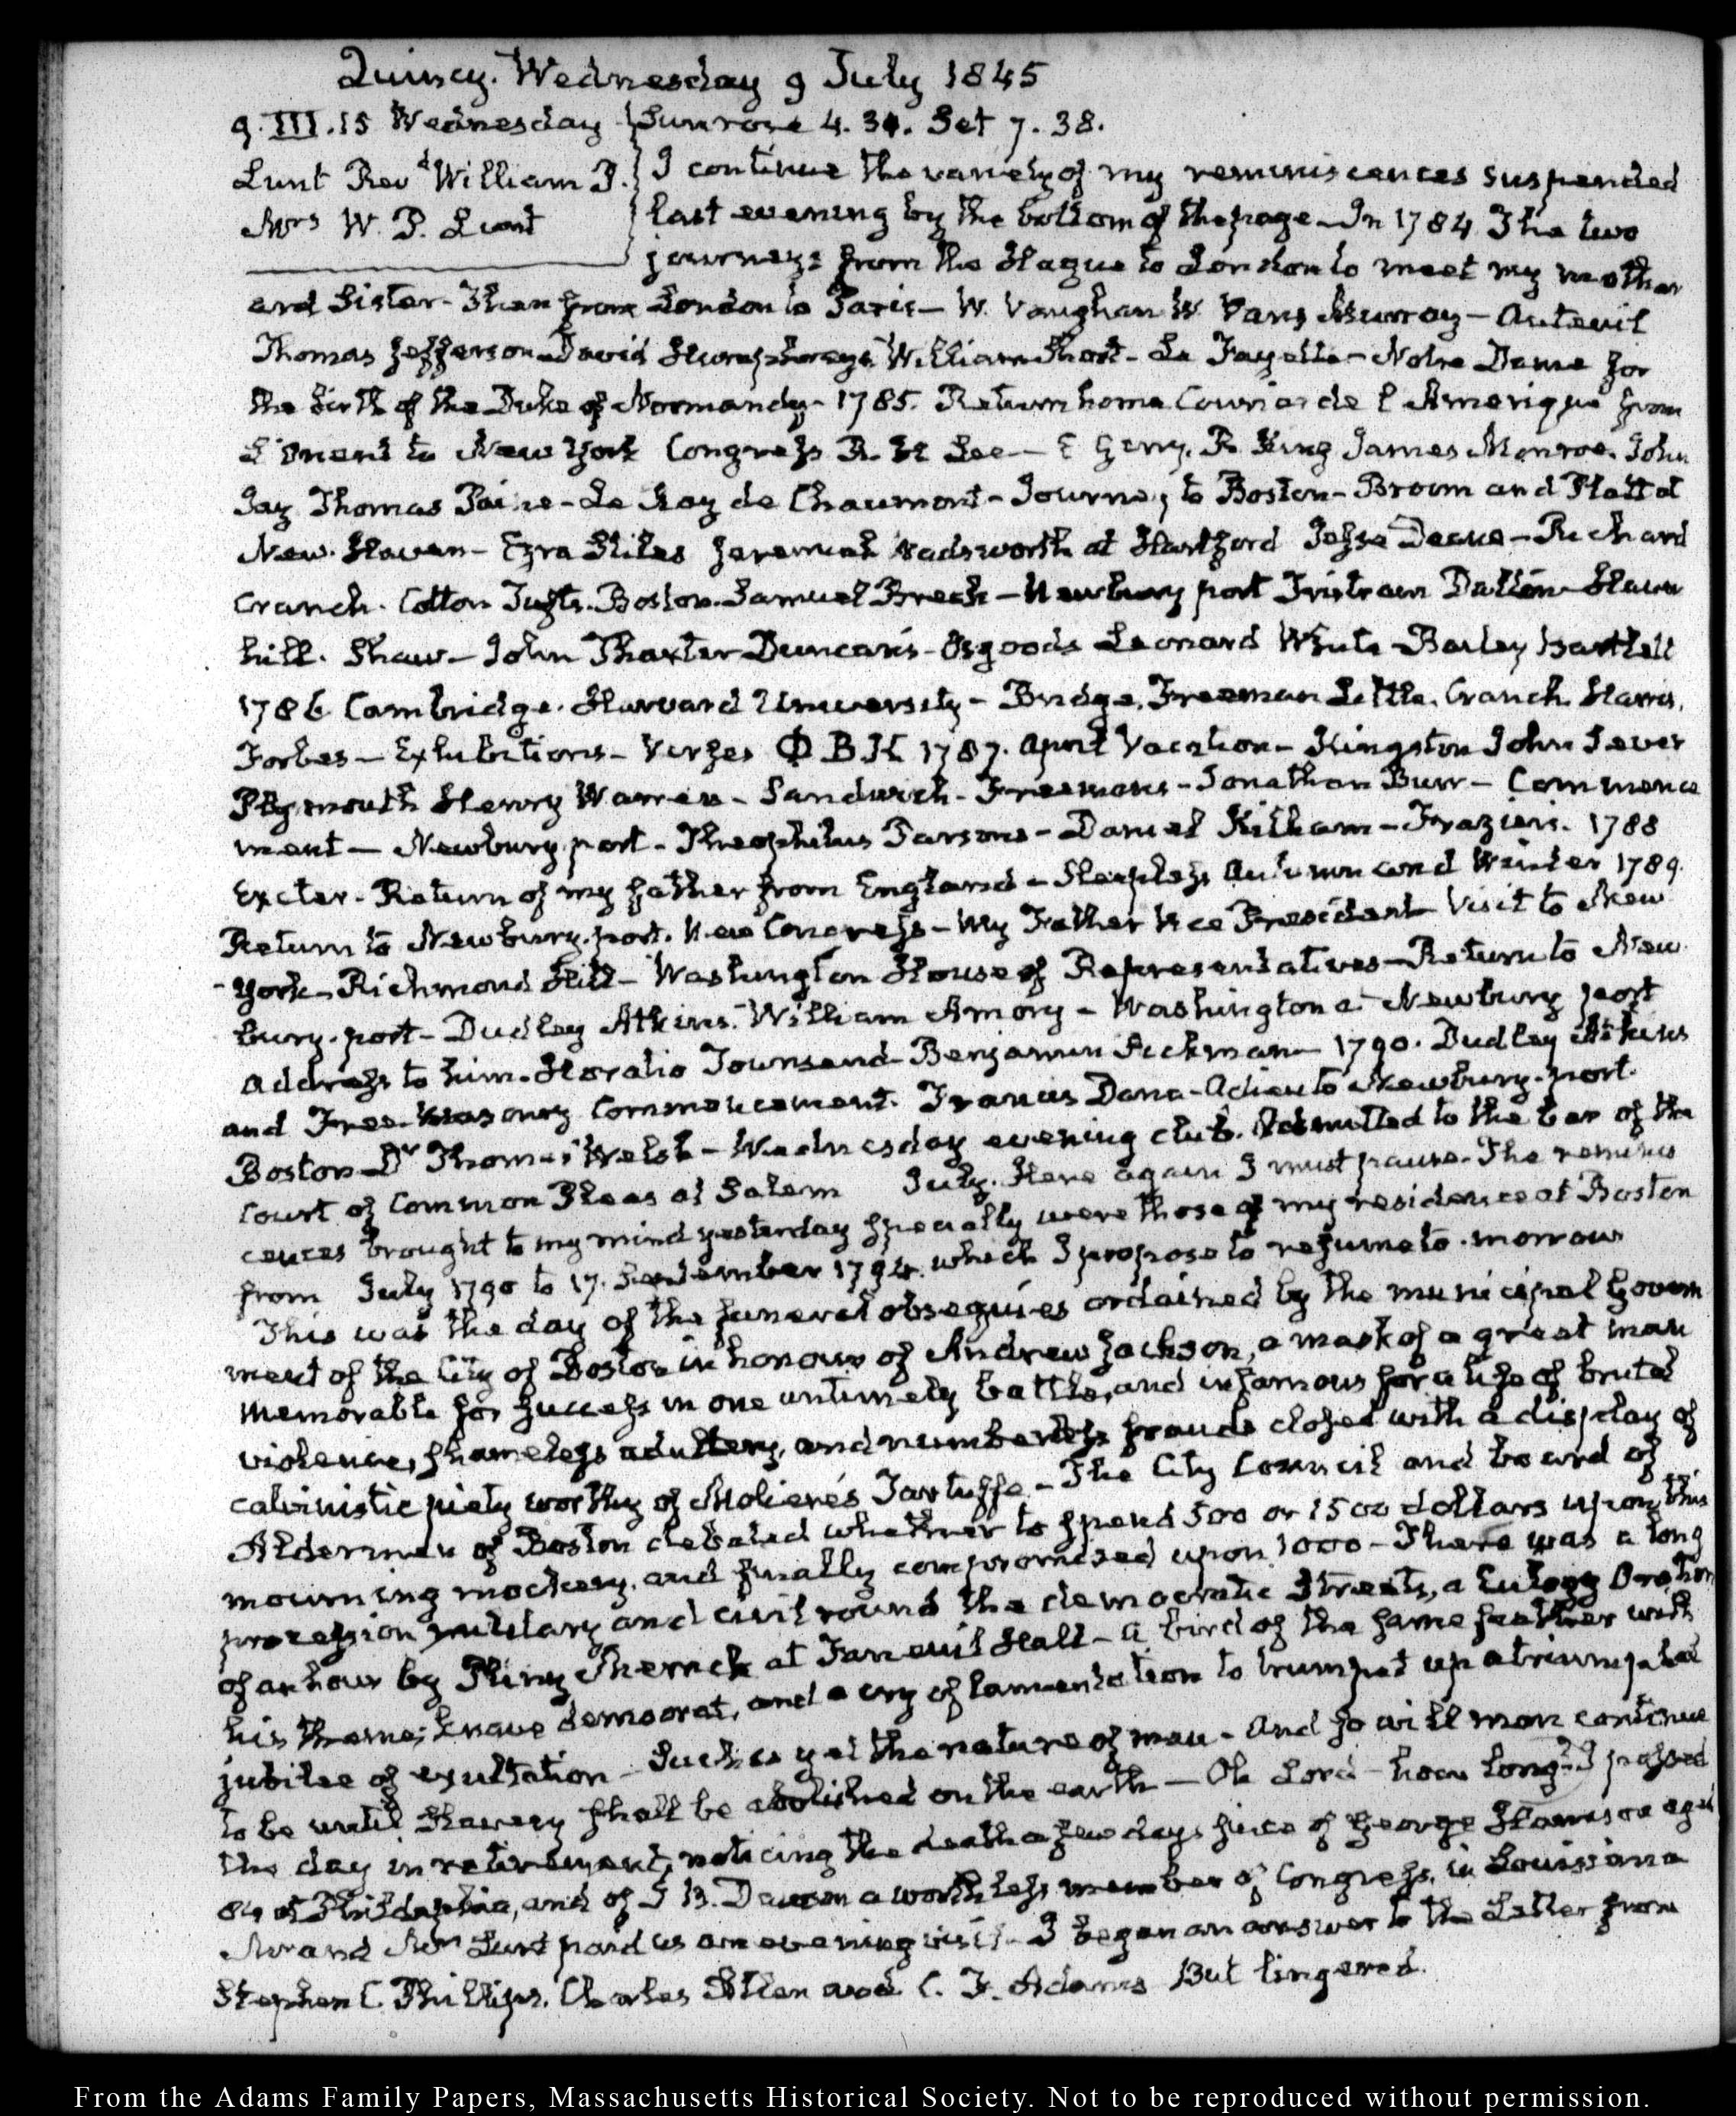 Quincy. Wednesday 9 July 1845
9. III. 15 Wednesday
Lunt Revd William P.
Mrs W. P. Lunt
Sun rose 4. 30. Set 7. 38.
I continue the variety of my reminiscences suspended
last evening by the bottom of the page – In 1784 The two
journeys from the Hague to London to meet my mother
and Sister – Then from London to Paris – W. Vaughan W. Vans Murray – Auteuil
Thomas Jefferson – David Humphreys William Short – La Fayette – Notre Dame for
the birth of the Duke of Normandy – 1785. Return home Courier de l'Amerique from
L'Orient to New York Congress R. H. Lee – E Gerry. R. King James Monroe. John
Jay Thomas Paine – Le Ray de Chaumont – Journey to Boston – Broom and Platt at
New Haven – Ezra Stiles Jeremiah Wadsworth at Hartford Jesse Deane – Richard
Cranch. Cotton Tufts. Boston. Samuel Breck – Newbury port Tristram Dalton – Haver
hill. Shaw – John Thaxter Duncan's – Osgoods Leonard White – Bailey Bartlett
1786. Cambridge. Harvard University – Bridge. Freeman Little. Cranch. Harris.
Forbes – Exhibitions – Verses Φ. B. K. 1787. April Vacation – Kingston John Sever
Plymouth Henry Warren – Sandwich – Freemans – Jonathan Burr – Commence
ment – Newbury port – Theophilus Parsons – Daniel Kilham – Fraziers. 1788
Exeter – Return of my father from England – Sleepless Autumn and Winter 1789.
Return to Newbury-port. New Congress – My Father Vice President Visit to New
York – Richmond Hill – Washington House of Representatives – Return to New
bury-port – Dudley Atkins. William Amory – Washington at Newbury port
Address to him. Horatio Townsend – Benjamin Pickman – 1790. Dudley Atkins
and Free-Masonry Commencement. Francis Dana – Adieu to Newbury-port.
Boston – Dr Thomas Welsh – Wednesday evening club. Admitted to the bar of the
Court of Common Pleas at Salem July. Here again I must pause. The reminis
cences brought to my mind yesterday specially were those of my residence at Boston
from July 1790 to 17. September 1794. which I propose to resume to-morrow
This was the day of the funeral obsequies ordained by the municipal Govern
ment of the City of Boston in honour of Andrew Jackson, a mask of a great man
memorable for success in one untimely battle, and infamous for a life of brutal
violence, shameless adultery, and numberless frauds closed with a display of
calvinistic piety worthy of Moliere's Tartuffe – The City Council and board of
Aldermen of Boston debated whether to spend 500 or 1500 dollars upon this
mourning mockery, and finally compromised upon 1000 – There was a long
procession military and civil round the democratic Streets, a Eulogy Oration
of an hour by Pliny Merrick at Faneuil Hall – a bird of the same feather with
his theme; knave democrat, and a cry of lamentation to trumpet up a triumphal
jubilee of exultation – Such is yet the nature of man – And so will man continue
to be until Slavery shall be abolished on the earth – Oh Lord – how long? I passed
the day in retirement, noticing the death a few days since of George Harrison aged
84 of Philadelphia, and of J B. Dawson a worthless member of Congress, in Louisiana
Mr and Mrs Lunt paid us an evening visit – I began an answer to the Letter from
Stephen C. Phillips, Charles Allen and C. F. Adams But lingered.
From the Adams Family Papers, Massachusetts Historical Society. Not to be reproduced without permission.